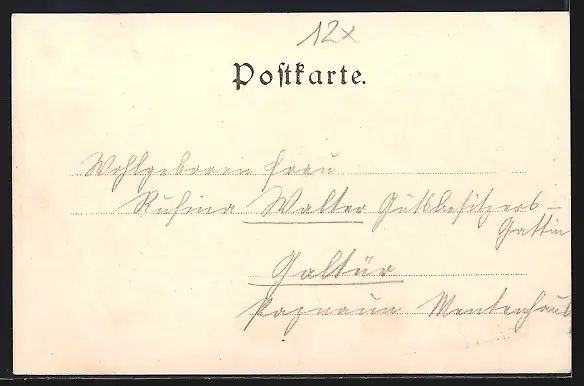 12x
Poſtkarte.
Wohlgeboren Frau
Rufina Walter Gutsbesitzers-
Gattin
Galtür
Paznaun